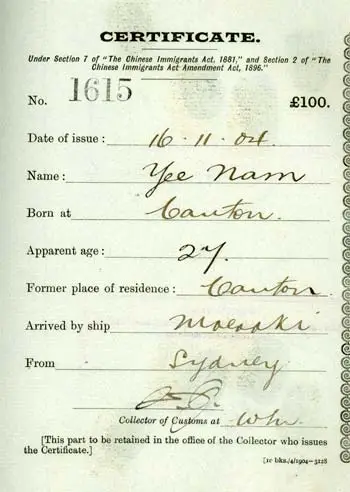 CERTIFICATE.
Under Section 7 of "The Chinese Immigrants Act, 1881," and Section 2 of "The
Chinese Immigrants Act Amendment Act, 1896."
No. 1615 £100.
Date of issue: 16 · 11 · 04
Name: Yee Nam
Born at Canton.
Apparent age: 27.
Former place of residence: Canton
Arrived by ship Moeraki
From Sydney
Collector of Customs at
[This part to be retained in the office of the Collector who issues
the Certificate.]
[10 bks./4/1904—3128